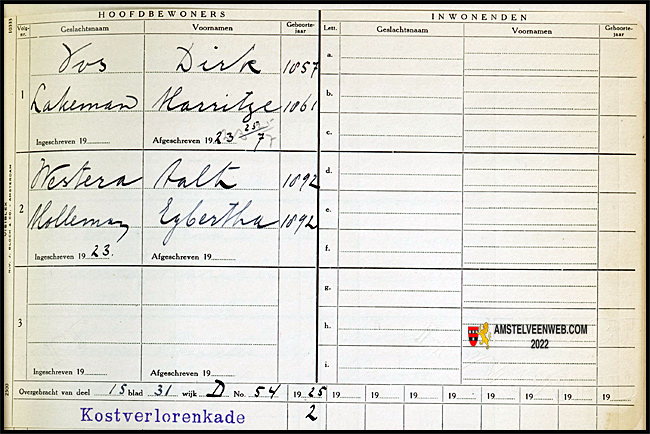 HOOFDBEWONERS INWONENDEN
Volg-nr. Geslachtsnaam Voornamen Geboorte-jaar Lett. Geslachtsnaam Voornamen Geboorte-jaar
Vos Dirk 1857 a.
1
Lakeman Marritze 1861 b.
Ingeschreven 19 Afgeschreven 1923 7 c.
Westera Aalt 1892 d.
2
Molleman Egbertha 1892 e.
Ingeschreven 1923. Afgeschreven 19 f.
g.
3 h.
AMSTELVEENWEB.COM
2022
Ingeschreven 19 Afgeschreven 19 i.
Overgebracht van deel 15 blad 31 wijk D No. 54 1925 19 19 19 19 19 19 19 19
Kostverlorenkade 2